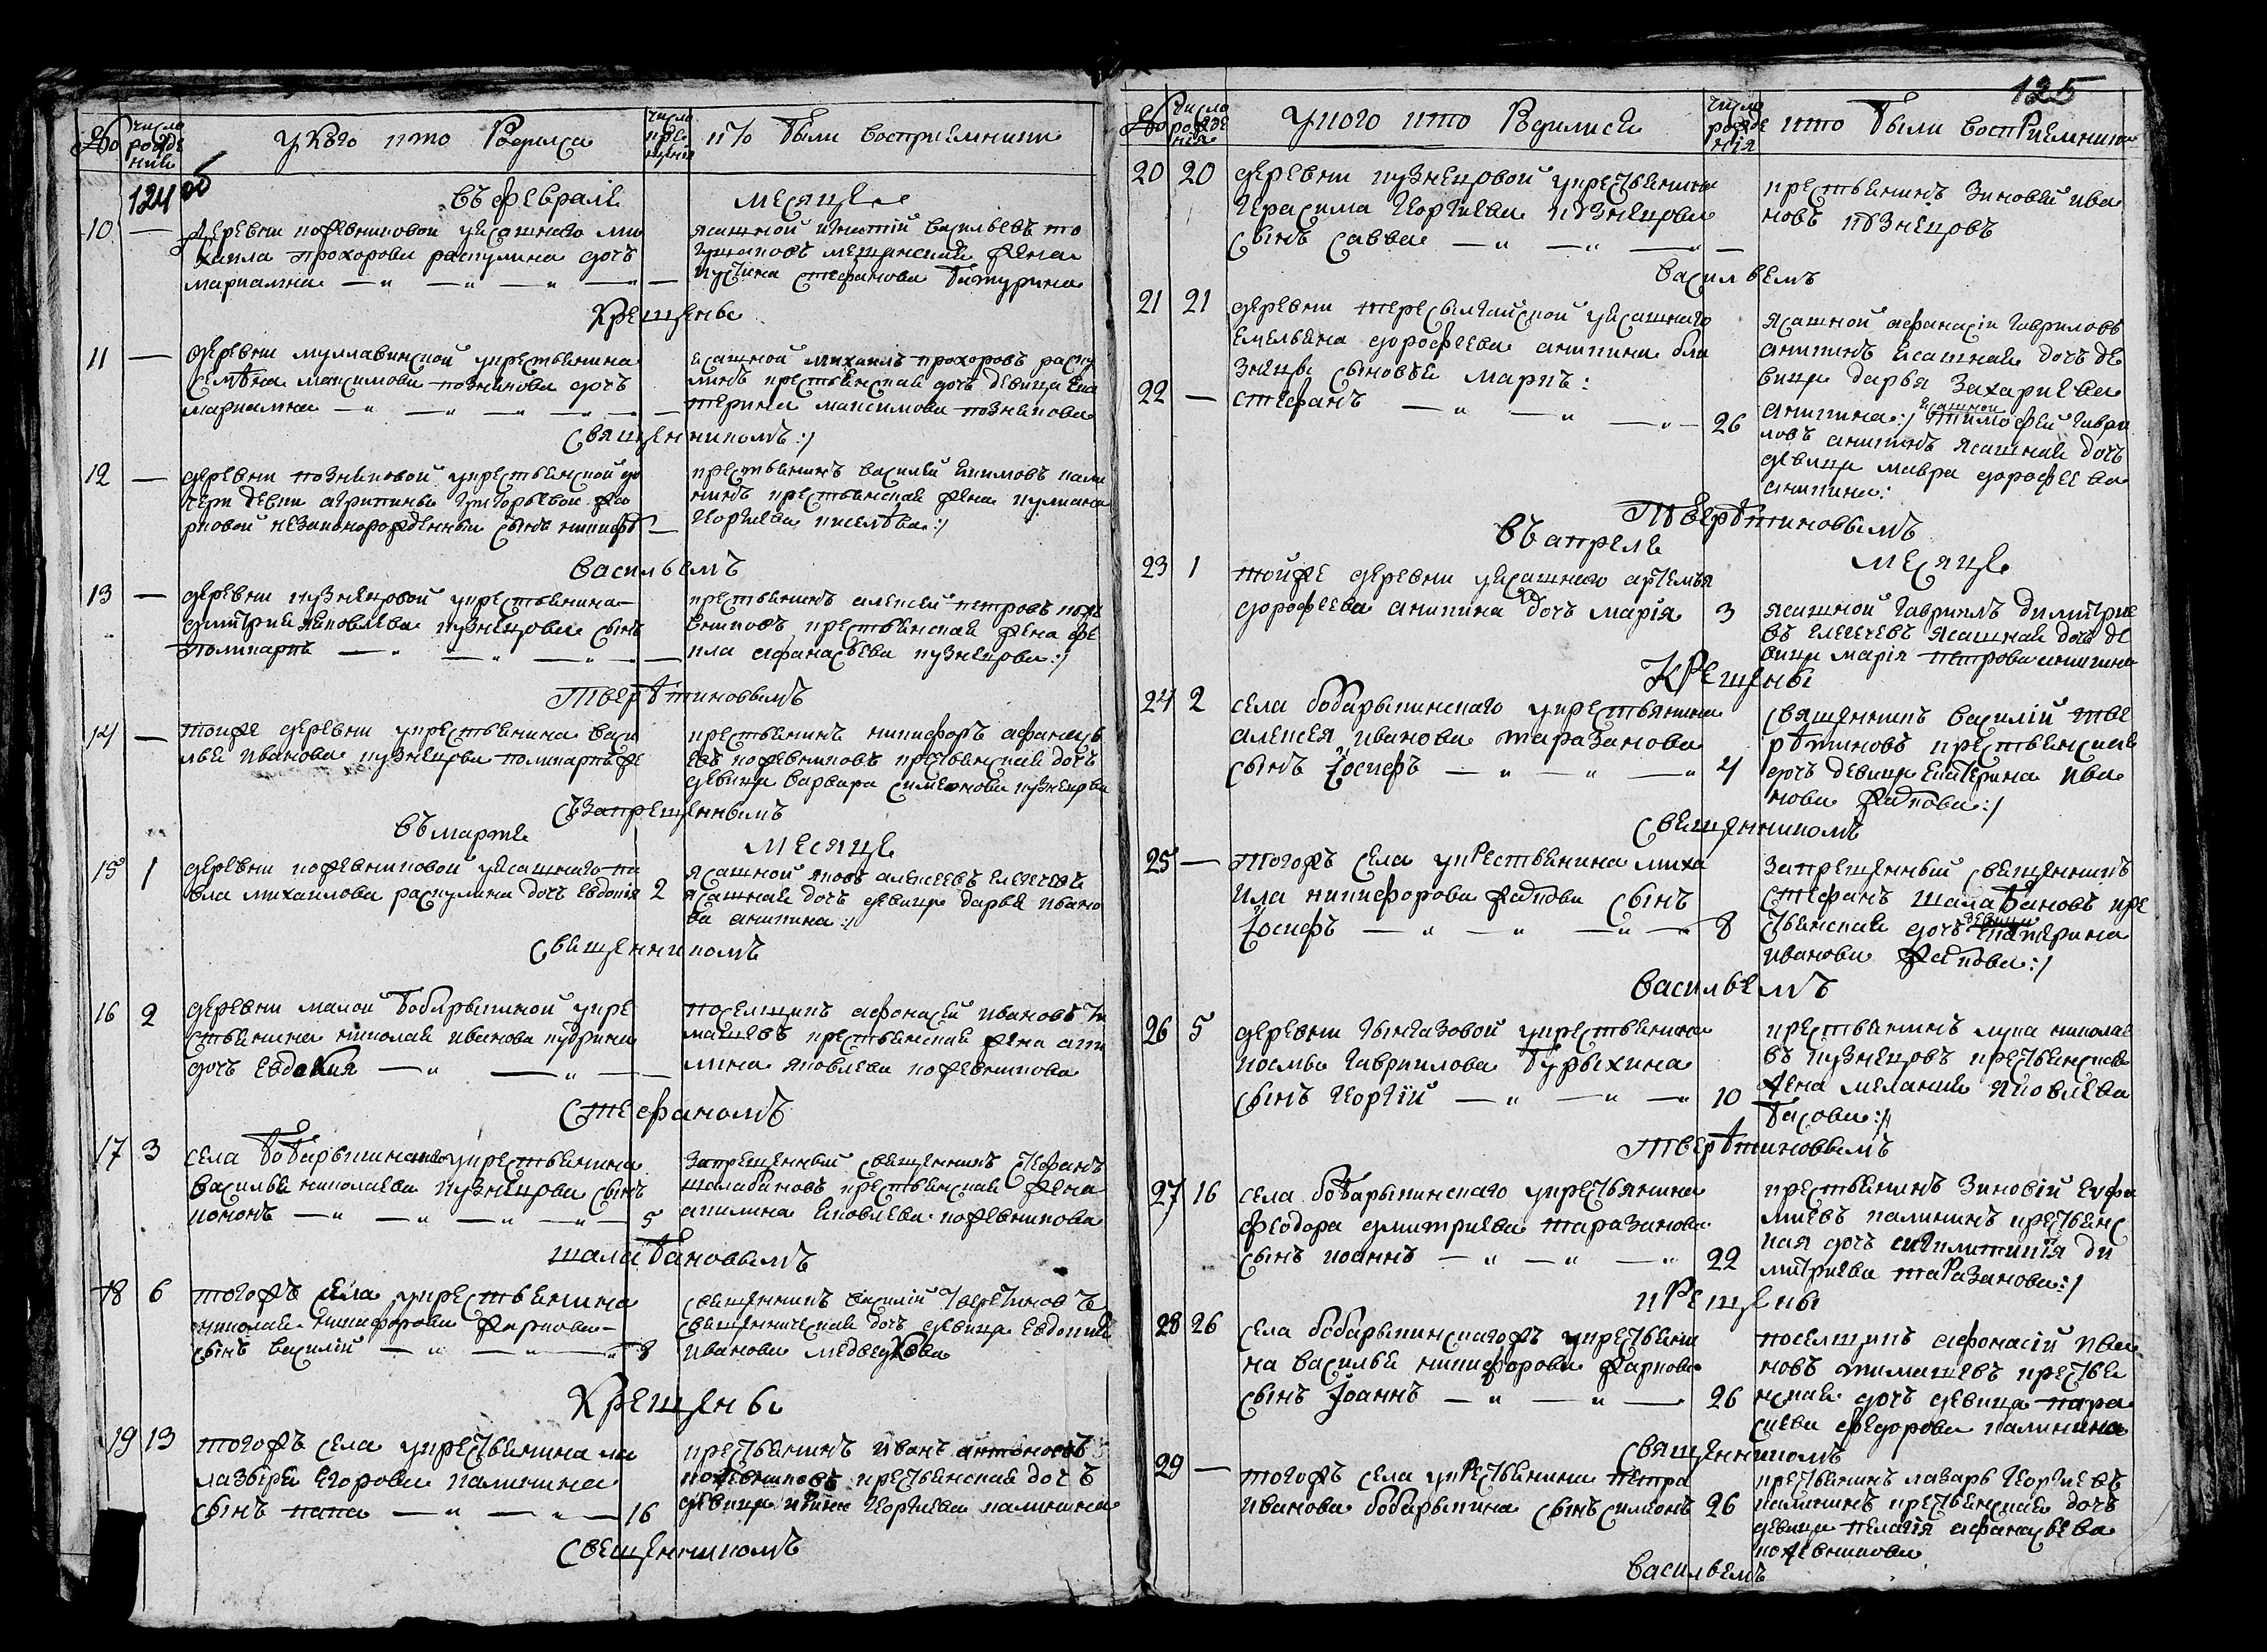 124 об
№ число рожде ния
у кого кто Родился
число кре щения
кто были восприемники
въ феврале месяце
10 — деревни кожевниковой у ясашнаго ми
хаила прохорова распутина дочь
мариамна —
ясашной
васильевъ
мещанская жена
стефанова батурина
Крещены
11 — деревни муллавинской у крестьянина
семена максимова познякова дочь
мариамна —
ясашной михаилъ прохоровъ распу
тинъ крестьянская дочь девица ека
терина максимова познякова
священникомъ :/
12 — деревни позняковой у крестьянской до
чери девки агрипины григорьевой жа
рковой незаконорожденный сынъ никифо —
крестьянинъ василей екимовъ кали
нинъ крестьянская жена улиана
георгиева киселева :/
васильемъ
13 — деревни кузнецовой у крестьянина
димитрия яковлева кузнецова сынъ
поликарпъ —
крестьянинъ алексей петровъ коже
вниковъ крестьянская жена фе
кла афанасьева кузнецова :/
тверетиновымъ
14 — тойже деревни у крестьянина васи
лья иванова кузнецова поликарпъ же
крестьянинъ никифоръ афанасьев
кожевниковъ крестьянская дочь
девица варвара симеонова кузнецова
съ запрещеннымъ
въ марте месяце
15 1 деревни кожевниковой у ясашнаго па
вла михаилова распутина дочь евдокия 2
ясашной яковъ алексеевъ елегечевъ
ясашная дочь девица дарья ивано
ва аникина :/
священникомъ
16 2 деревни малой бобарыкиной у кре
стьянина николая иванова кудрина
дочь евдокия —
поселщикъ афонасей ивановъ ти
машевъ крестьянская жена аки
лина яковлева кожевникова
стефаномъ
17 3 села бобарыкинскаго у крестьянина
василья николаева кузнецова сынъ
кононъ — 5
запрещенный священникъ стефанъ
шалабановъ крестьянская жена
акилина яковлева кожевникова
шалабановымъ
18 6 тогожъ села у крестьянина
николая никифорова жаркова
сынъ василий — 8
священникъ василий тверетиновъ
священническая дочь девица евдокия
иванова медведкова
Крещены
19 13 тогожъ села у крестьянина ла
лазаря егорова калинина
сынъ — 16
крестьянинъ иванъ антоновъ
кожевниковъ крестьянская дочь
девица георгиева калинина
священникомъ
125
№ число рожде ния
у кого кто Родились
число рожде ния
кто были восприемники
20 20 деревни кузнецовой у крестьянина
герасима георгиева кузнецова
сынъ савва —
крестьянинъ зиновей ива
новъ кузнецовъ
васильемъ
21 21 деревни у ясашнаго
емельяна дорофеева аникина бли
знецы сыновья маркъ :
22 — стефанъ — 26
ясашной афанасии гавриловъ
аникинъ ясашная дочь де
вица дарья захариева
аникина :/ ясашной тимофей гаври
ловъ аникинъ ясашная дочь
девица мавра дорофеева
аникина :
тверетиновымъ
въ апреле месяце
23 1 тойже деревни у ясашнаго артемья
дорофеева аникина дочь мария 3
ясашной гавриилъ димитрие
въ елегечевъ ясашная дочь де
вица мария петрова аникина
Крещены
24 2 села бобарыкинскаго у крестьянина
алексея иванова таразанова
сынъ Иосифъ — 4
священникъ василий тве
ретиновъ крестьянская
дочь девица екатерина ива
нова жаркова :/
священникомъ
25 — тогожъ села у крестьянина миха
ила никифорова жаркова сынъ
Иосифъ — 8
запрещенный священникъ
стефанъ шалабановъ кре
стьянская дочь девица екатерина
иванова жаркова :/
васильемъ
26 5 деревни у крестьянина
космы гавриилова бурыхина
сынъ георгий — 10
крестьянинъ лука николае
въ кузнецовъ крестьянская
жена мелания яковлева
басова :/
тверетиновымъ
27 16 села бобарыкинскаго у крестьянина
феодора димитриева таразанова
сынъ иоаннъ — 22
крестьянинъ зиновий ефи
миевъ калининъ крестьянс
кая дочь ди
митриева таразанова :/
крещены
28 26 села бобарыкинскагожъ у крестьяни
на василья никифорова жаркова
сынъ Иоаннъ — 26
поселщикъ афонасий ива
новъ тимашевъ крестья
нская дочь девица пара
скева федорова калинина
священникомъ
29 — тогожъ села у крестьянина петра
иванова бобарыкина сынъ симионъ 26
крестьянинъ лазарь георгиевъ
калининъ крестьянская дочь
девица пелагия афанасьева
кожевникова
васильемъ